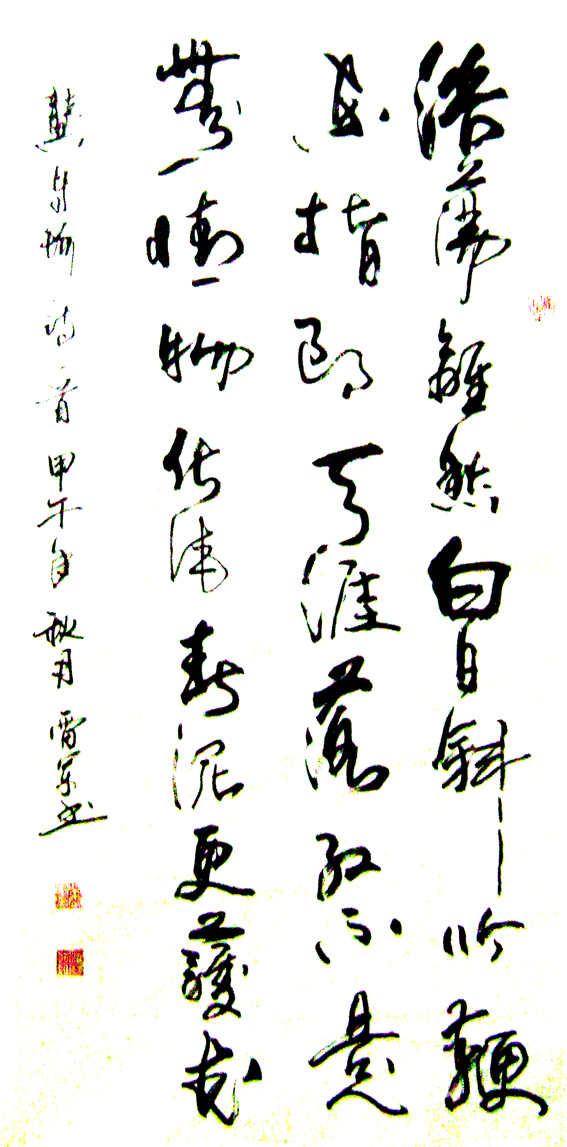 浩蕩離愁白日斜吟鞭
东指即天涯落红不是
無情物化作春泥更護花
龔自珍诗一首甲午年秋月雷军书